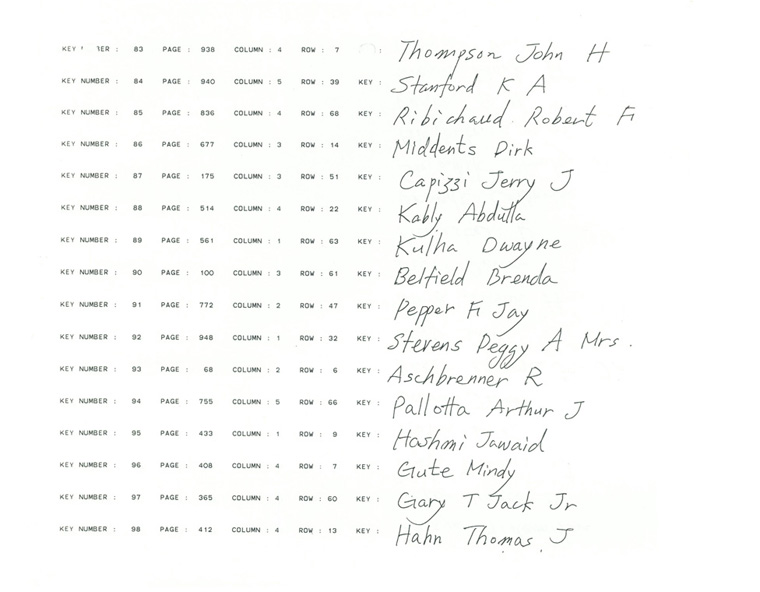 KEY NUMBER : 83 PAGE : 938 COLUMN : 4 ROW : 7 : Thompson John H
KEY NUMBER : 84 PAGE : 940 COLUMN : 5 ROW : 39 KEY : Stanford K A
KEY NUMBER : 85 PAGE : 836 COLUMN : 4 ROW : 68 KEY : Ribichaud Robert F
KEY NUMBER : 86 PAGE : 677 COLUMN : 3 ROW : 14 KEY : Middents Dirk
KEY NUMBER : 87 PAGE : 175 COLUMN : 3 ROW : 51 KEY : Capizzi Jerry J
KEY NUMBER : 88 PAGE : 514 COLUMN : 4 ROW : 22 KEY : Kably Abdulla
KEY NUMBER : 89 PAGE : 561 COLUMN : 1 ROW : 63 KEY : Kulha Dwayne
KEY NUMBER : 90 PAGE : 100 COLUMN : 3 ROW : 61 KEY : Belfield Brenda
KEY NUMBER : 91 PAGE : 772 COLUMN : 2 ROW : 47 KEY : Pepper F Jay
KEY NUMBER : 92 PAGE : 948 COLUMN : 1 ROW : 32 KEY : Stevens Peggy A Mrs.
KEY NUMBER : 93 PAGE : 68 COLUMN : 2 ROW : 6 KEY : Aschbrenner R
KEY NUMBER : 94 PAGE : 755 COLUMN : 5 ROW : 66 KEY : Pallotta Arthur J
KEY NUMBER : 95 PAGE : 433 COLUMN : 1 ROW : 9 KEY : Hashmi Jawaid
KEY NUMBER : 96 PAGE : 408 COLUMN : 4 ROW : 7 KEY : Gute Mindy
KEY NUMBER : 97 PAGE : 365 COLUMN : 4 ROW : 60 KEY : Gary T Jack Jr
KEY NUMBER : 98 PAGE : 412 COLUMN : 4 ROW : 13 KEY : Hahn Thomas J